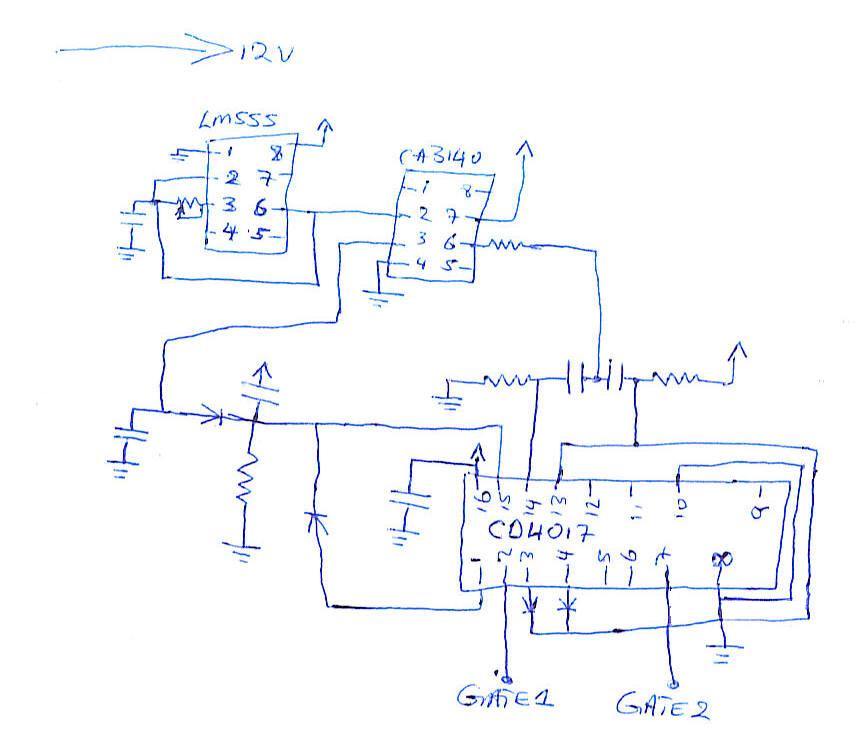 12V
LM555
1 8
2 7
3 6
4 5
CA3140
1 8
2 7
3 6
4 5
16 15 14 13 12 11 10 9
CD4017
1 2 3 4 5 6 7 8
GATE1
GATE2